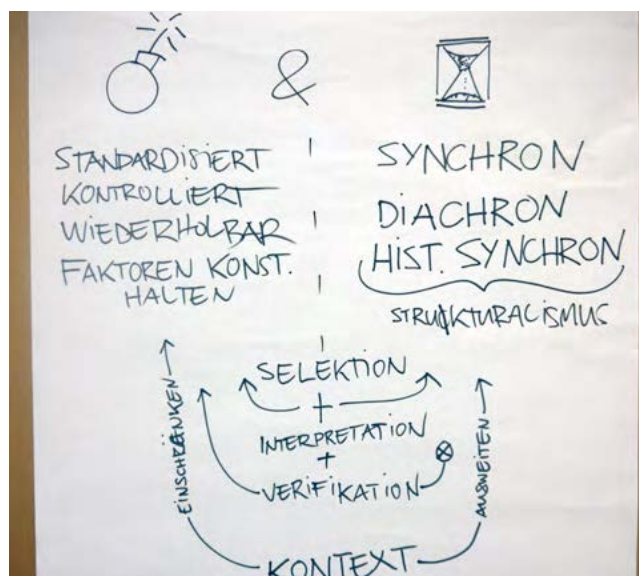 &
STANDARDISIERT
KONTROLLIERT
WIEDERHOLBAR
FAKTOREN KONST.
HALTEN
SYNCHRON
DIACHRON
HIST. SYNCHRON
STRUKTURALISMUS
SELEKTION
+
INTERPRETATION
+
VERIFIKATION
EINSCHRÄNKEN
AUSWEITEN
KONTEXT